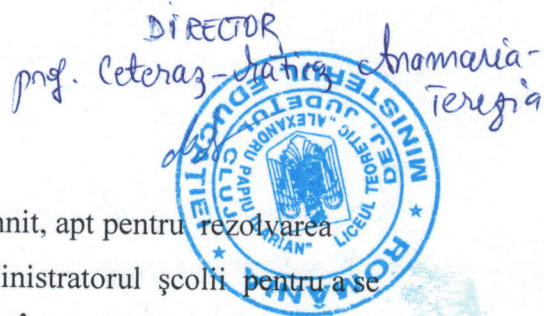 DIRECTOR
prof. Ceteraz-Matiea Anamaria-
Terezia
MINISTERUL EDUCAȚIEI ★ ROMÂNIA ★
DEJ, JUDEȚUL CLUJ
LICEUL TEORETIC „ALEXANDRU PAPIU ILARIAN”
nit, apt pentru rezolvarea
inistratorul școlii pentru a se